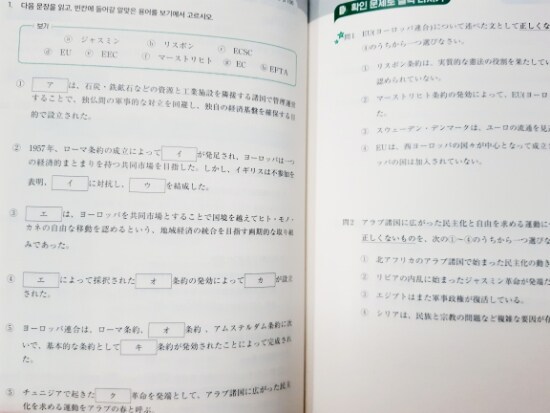 1. 다음 문장을 읽고, 빈칸에 들어갈 알맞은 용어를 보기에서 고르시오.
보기
ⓐ ジャスミン ⓑ リスボン ⓒ ECSC
ⓓ EU ⓔ EEC ⓕ マーストリヒト ⓖ EC ⓗ EFTA
① ア は、石炭・鉄鉱石などの資源と工業施設を隣接する諸国で管理運営
することで、独仏間の軍事的な対立を回避し、独自の経済基盤を確保する目
的で設立された。
② 1957年、ローマ条約の成立によって イ が発足され、ヨーロッパは一つ
の経済的まとまりを持つ共同市場を目指した。しかし、イギリスは不参加を
表明、イ に対抗し、ウ を結成した。
③ エ は、ヨーロッパを共同市場とすることで国境を越えてヒト・モノ・
カネの自由な移動を認めるという、地域経済の統合を目指す画期的な取り組
みであった。
④ エ によって採択された オ 条約の発効によって カ が設立
された。
⑤ ヨーロッパ連合は、ローマ条約、オ 条約、アムステルダム条約に次
いで、基本的な条約として キ 条約が発効されたことによって完成され
た。
⑤ チュニジアで起きた ク 革命を発端として、アラブ諸国に広がった民主
化を求める運動をアラブの春と呼ぶ。
확인 문제로
問1 EU(ヨーロッパ連合)について述べた文として正しくな
④のうちから一つ選びなさい。
① リスボン条約は、実質的な憲法の役割を果たしてい
認められていない。
② マーストリヒト条約の発効によって、EU(ヨーロ
③ スウェーデン・デンマークは、ユーロの流通を見
④ EUは、西ヨーロッパの国々が中心となって成立
ッパの国は加入されていない。
問2 アラブ諸国に広がった民主化と自由を求める運動に
正しくないものを、次の①~④のうちから一つ選びな
① 北アフリカのアラブ諸国で始まった民主化の動き
② リビアの内乱に始まったジャスミン革命が発端
③ エジプトはまた軍事政権が復活している。
④ シリアは、民族と宗教の問題など複雑な要因が